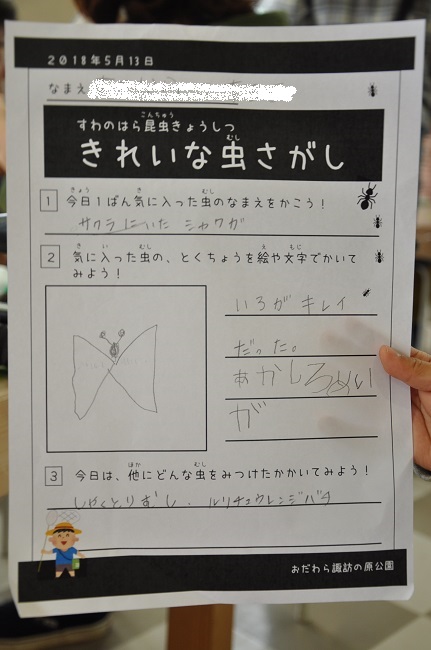 2018年5月13日
なまえ
すわのはら昆虫きょうしつ
きれいな虫さがし
1 今日1ばん気に入った虫のなまえをかこう！
サクラにいた シャクガ
2 気に入った虫の、とくちょうを絵や文字でかいて
みよう！
いろが キレイ
だった。
あかしろ
が
3 今日は、他にどんな虫をみつけたかかいてみよう！
しゃくとりむし、ルリチュウレンジバチ
おだわら諏訪の原公園